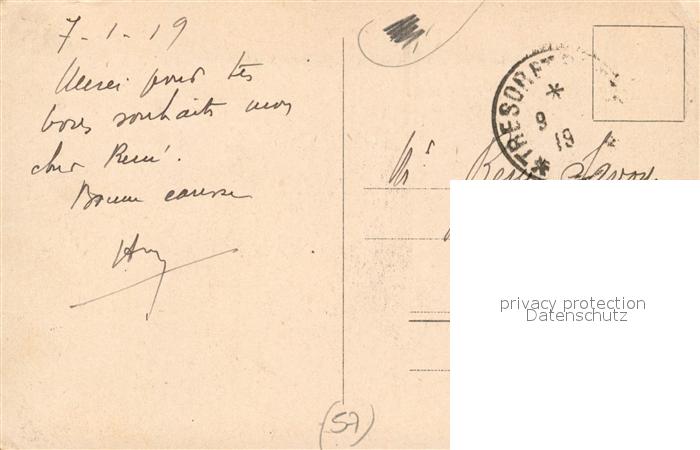 7-1-19
Merci pour tes
bons souhaits mon
cher René.
Bonne
TRESOR ET
9
19
Mr René
privacy protection
Datenschutz
(57)